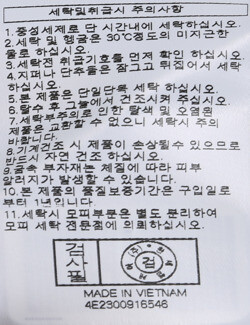 세탁및취급시 주의사항
1.중성세제로 단 시간내에 세탁하십시오.
2.세탁 및 헹굼은 30℃정도의 미지근한
물로 하십시오.
3.세탁전 취급기호를 먼저 확인 하십시오
4.지퍼나 단추등은 잠그고 뒤집어서 세탁
하십시오.
5.본 제품은 단일단독 세탁 하십시오.
6.탈수 후 그늘에서 건조시켜 주십시오.
7.세탁부주의로 인한 탈색 및 오염된
제품은 교환할 수 없으니 세탁시 주의
바랍니다.
8.기계건조 시 제품이 손상될수 있으므로
반드시 자연 건조 하십시오.
9.금속 부자재는 체질에 따라 피부
알러지가 발생할 수 있습니다.
10.본 제품의 품질보증기간은 구입일로
부터 1년입니다.
11.세탁시 모피부분은 별도 분리하여
모피 세탁 전문점에 의뢰하십시오.
검사필
검
MADE IN VIETNAM
4E2300916546